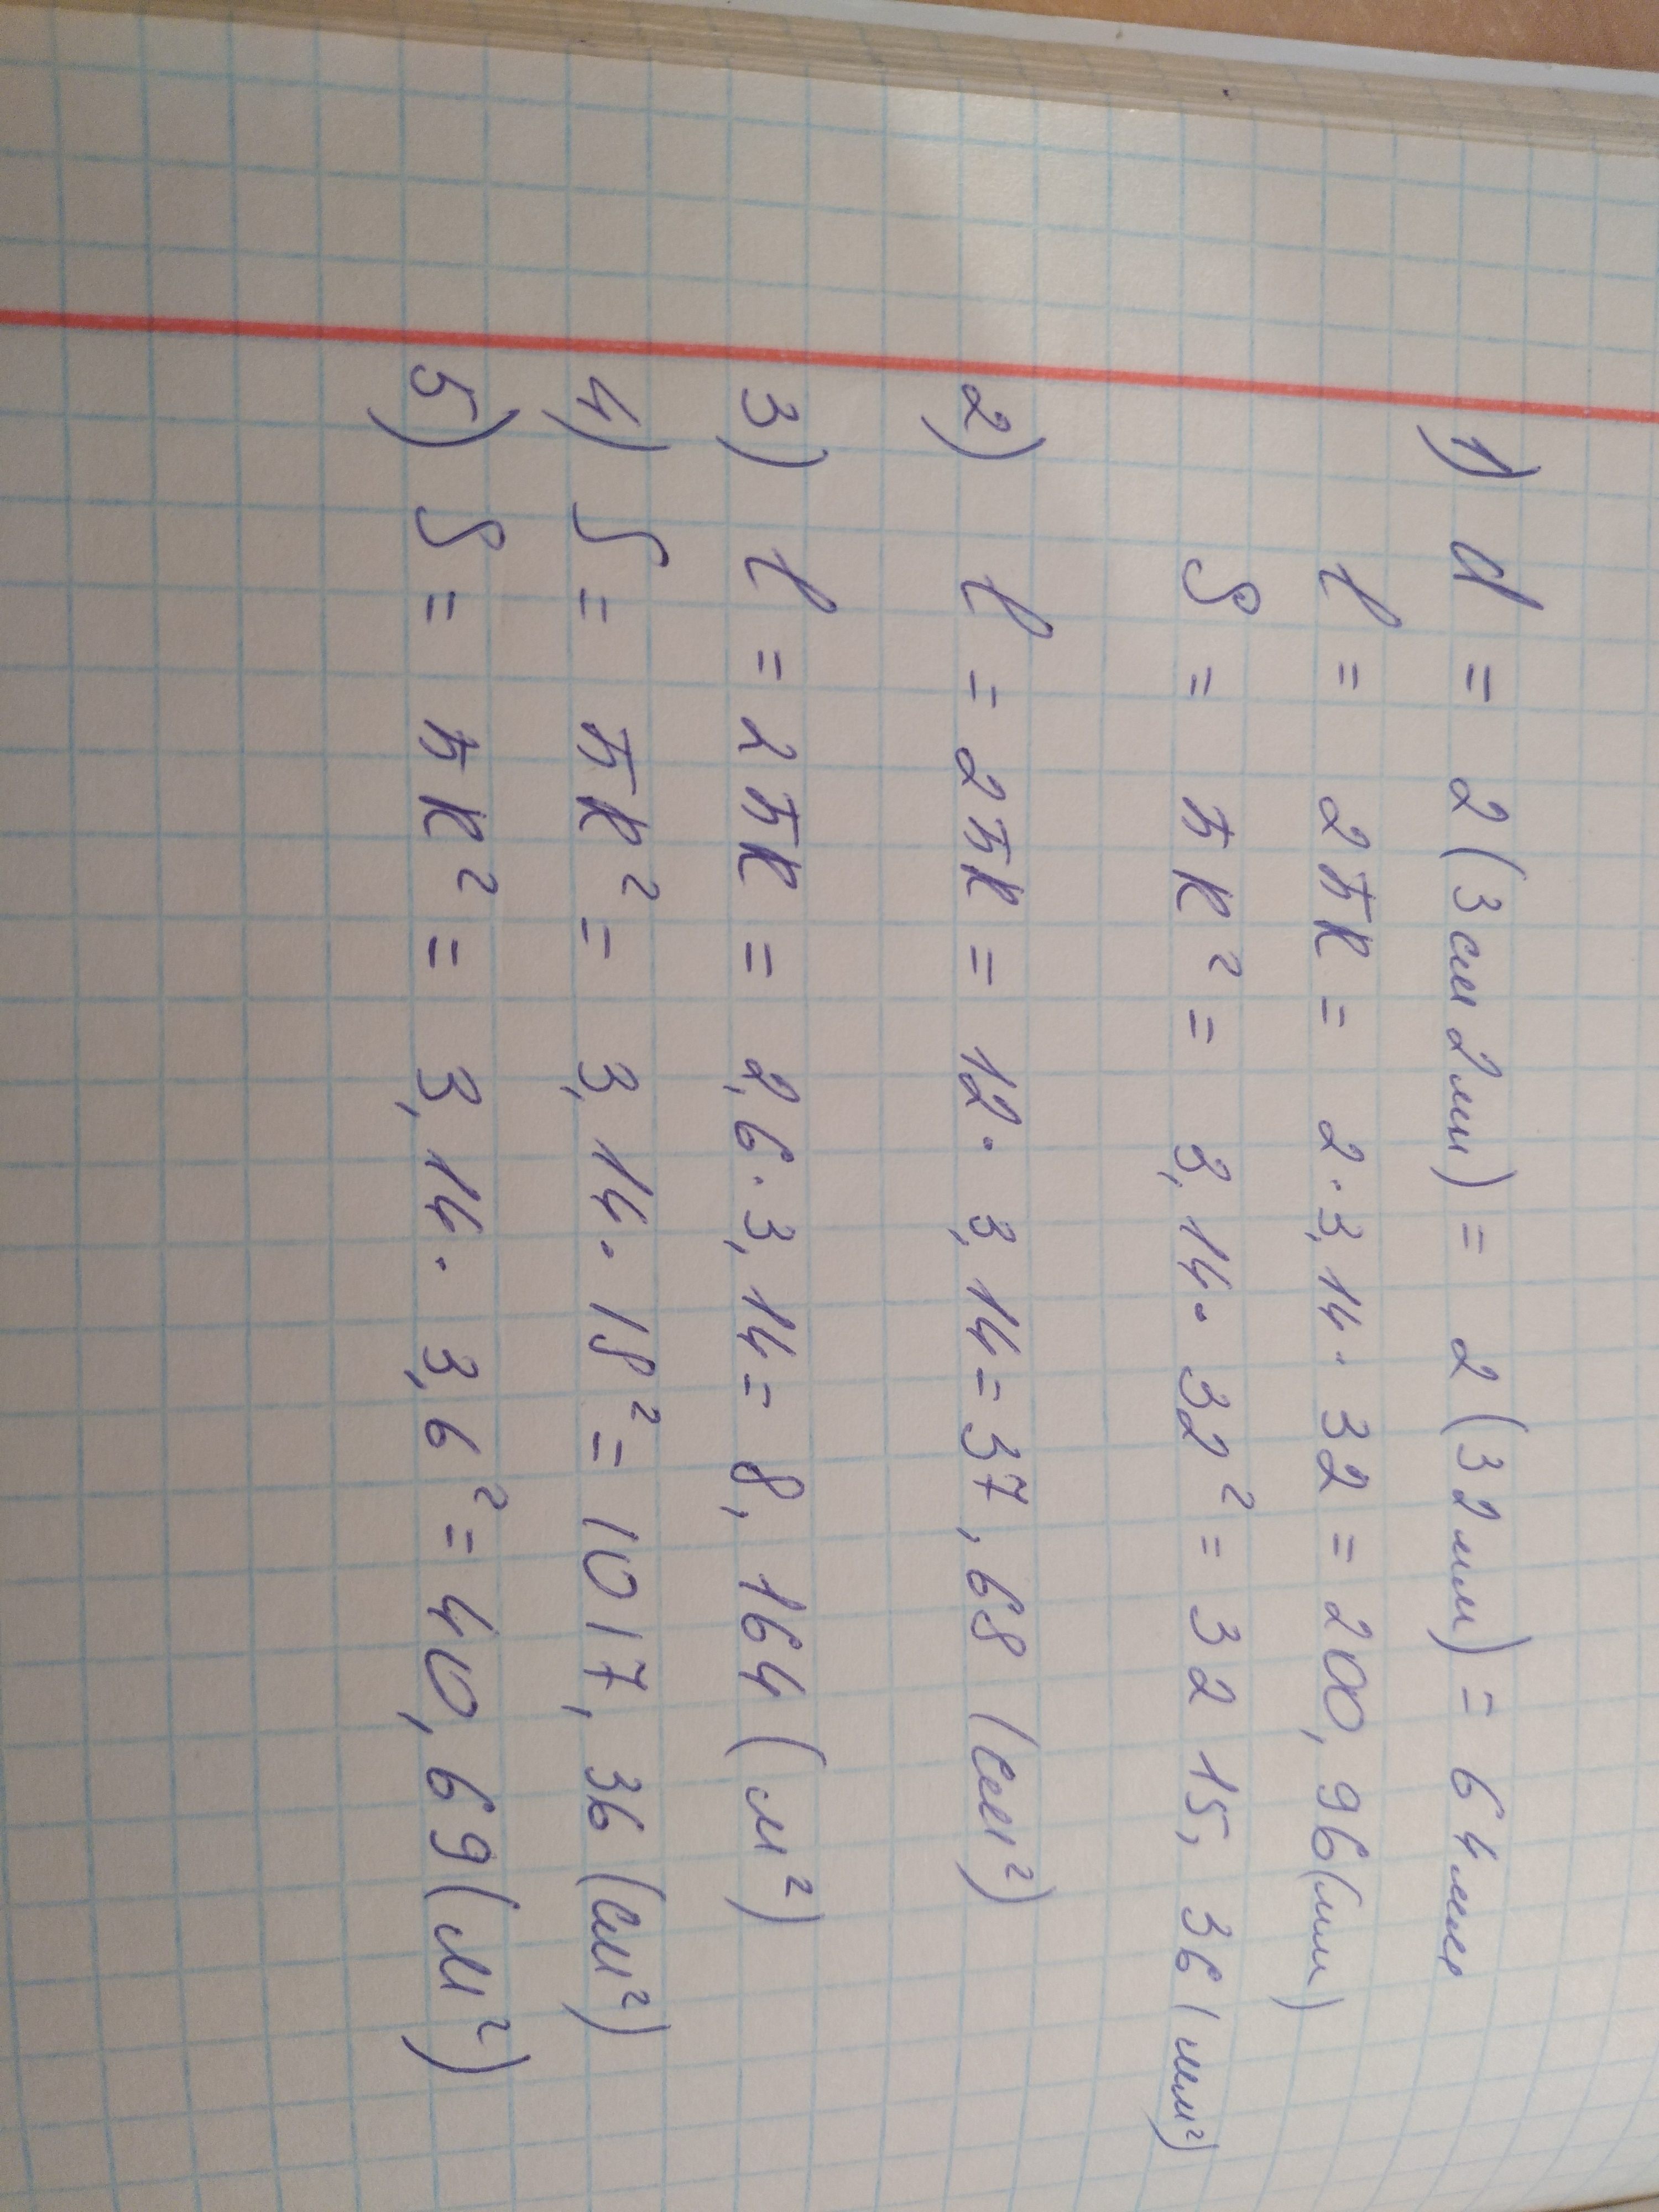 1) d = 2(3см 2мм) = 2(32мм) = 64мм
ℓ = 2πR = 2·3,14·32 = 200,96(мм)
S = πR² = 3,14·32² = 3215,36(мм²)
2) ℓ = 2πR = 12·3,14 = 37,68 (см²)
3) ℓ = 2πR = 2,6·3,14 = 8,164 (м²)
4) S = πR² = 3,14·18² = 1017,36 (см²)
5) S = πR² = 3,14·3,6² = 40,69 (м²)